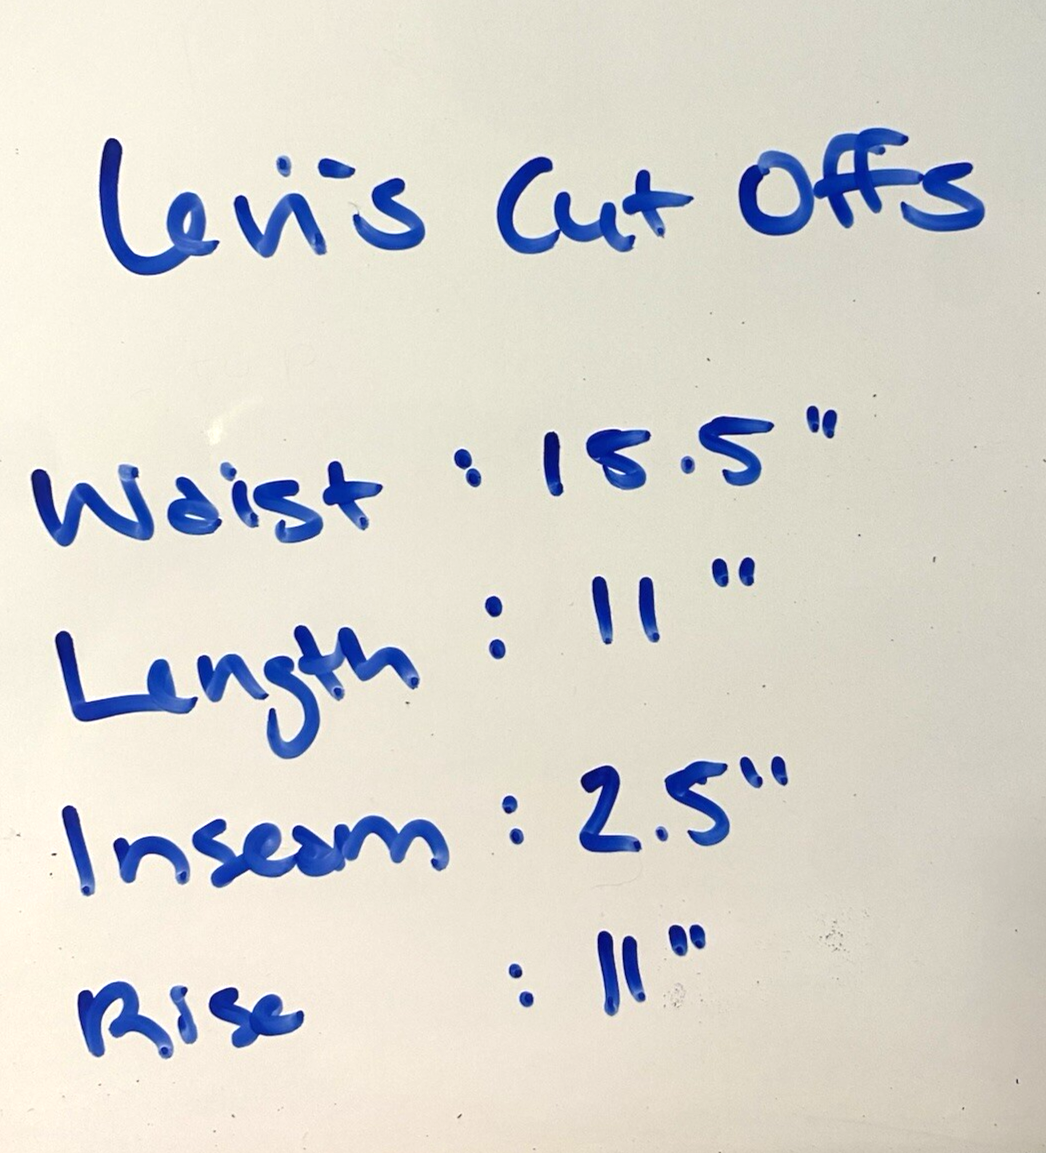 Levi's Cut Offs
Waist : 18.5"
Length : 11"
Inseam : 2.5"
Rise : 11"